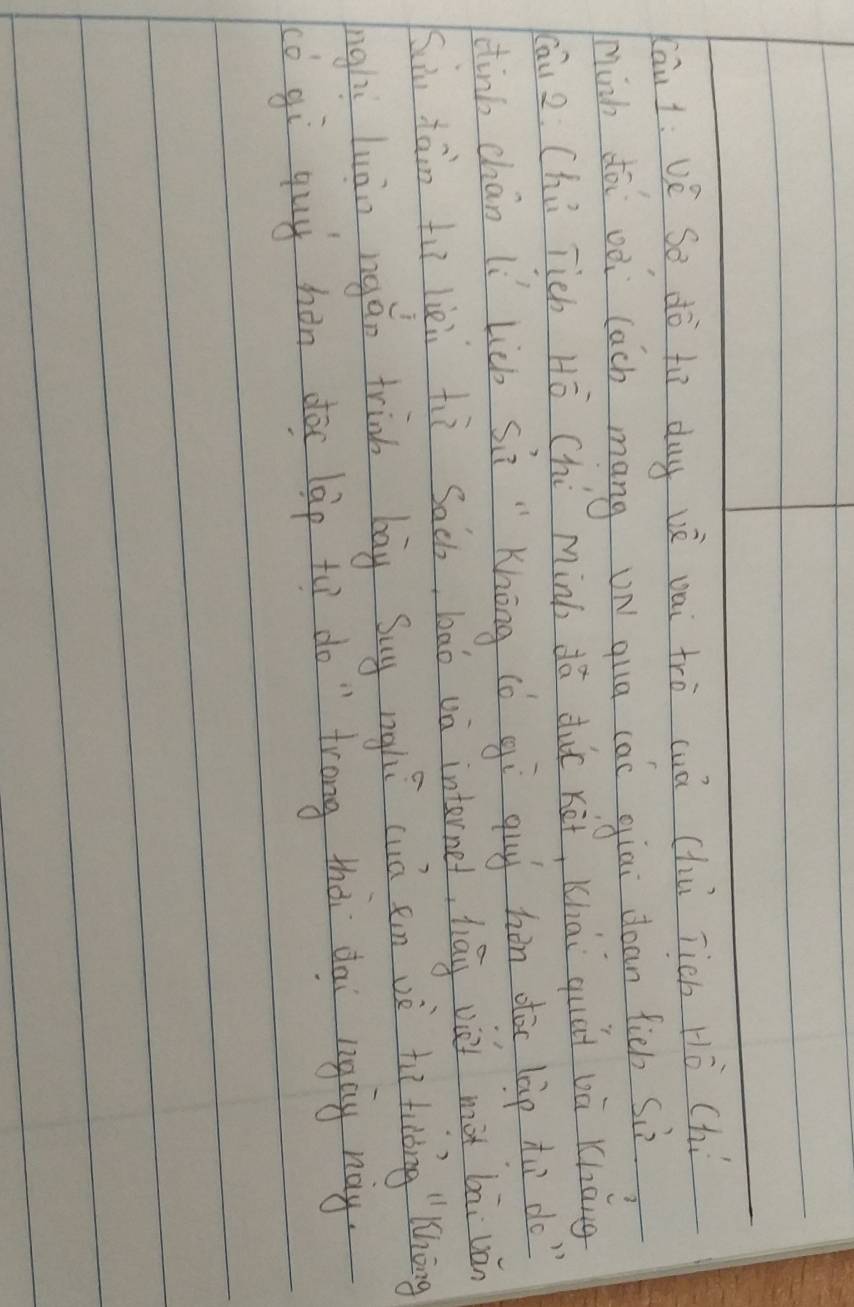 Câu 1: Vẽ sơ đồ tư duy về vai trò của Chủ Tịch Hồ Chí
Minh đối với Cách mạng VN qua các giai đoạn lịch sử.
Câu 2: Chủ Tịch Hồ Chí Minh đã đút kết, Khái quát và Khẳng
định chân lí Lịch Sử "Không có gì quý hơn độc lập tự do"
Sưu tầm tư liệu từ Sách, báo và internet, hãy viết một bài văn
nghị luận ngắn trình bày Suy nghĩ của em về tư tưởng "Không
có gì quý hơn độc lập tự do" trong thời đại ngày nay.